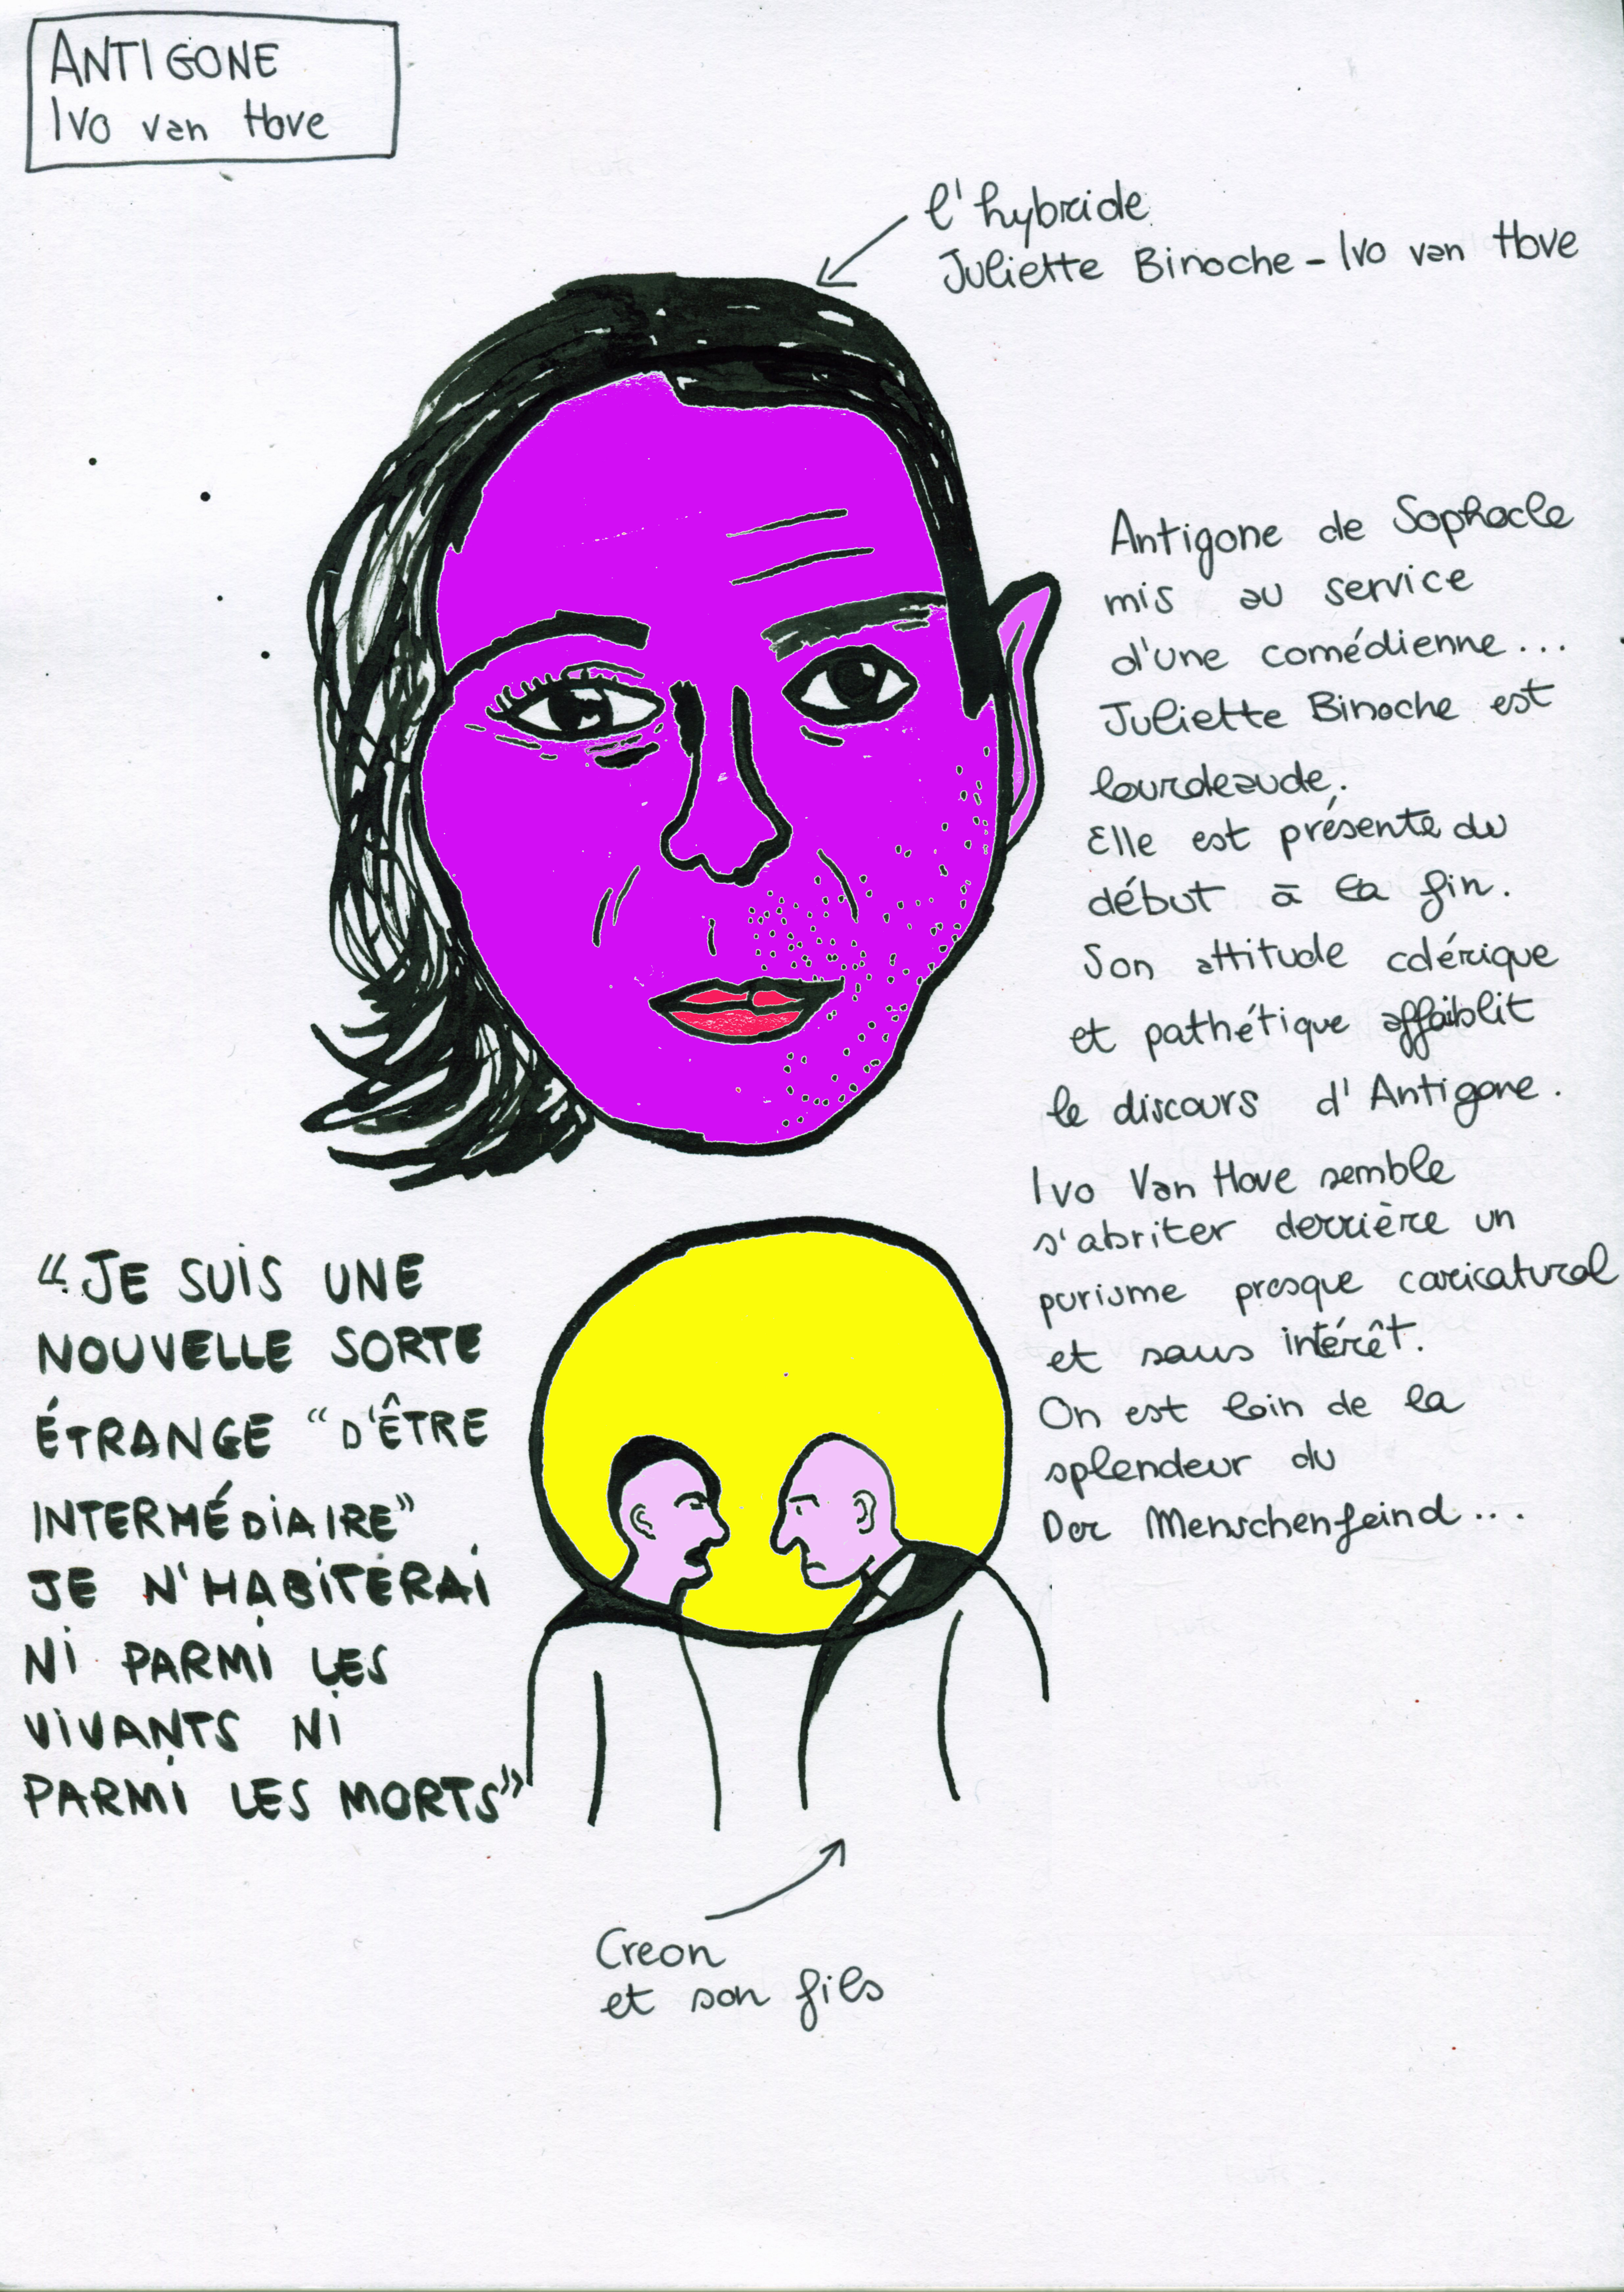 ANTIGONE
Ivo van Hove
l'hybride
Juliette Binoche - Ivo van Hove
Antigone de Sophocle
mis au service
d'une comédienne...
Juliette Binoche est
lourdeaude.
Elle est présente du
début à la fin.
Son attitude colérique
et pathétique affaiblit
le discours d'Antigone.
Ivo Van Hove semble
s'abriter derrière un
purisme presque caricatural
et sans intérêt.
On est loin de la
splendeur du
Der Menschenfeind...
"JE SUIS UNE
NOUVELLE SORTE
ÉTRANGE "D'ÊTRE
INTERMÉDIAIRE"
JE N'HABITERAI
NI PARMI LES
VIVANTS NI
PARMI LES MORTS"
Creon
et son fils